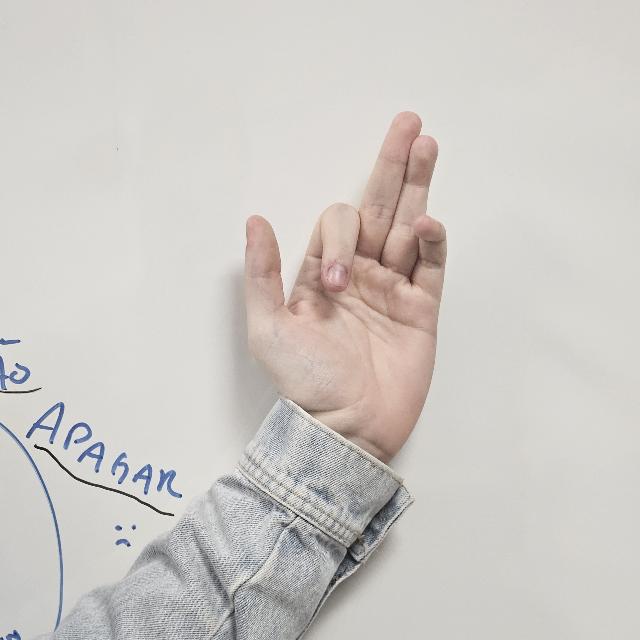 ÃO
APAGAR
:(